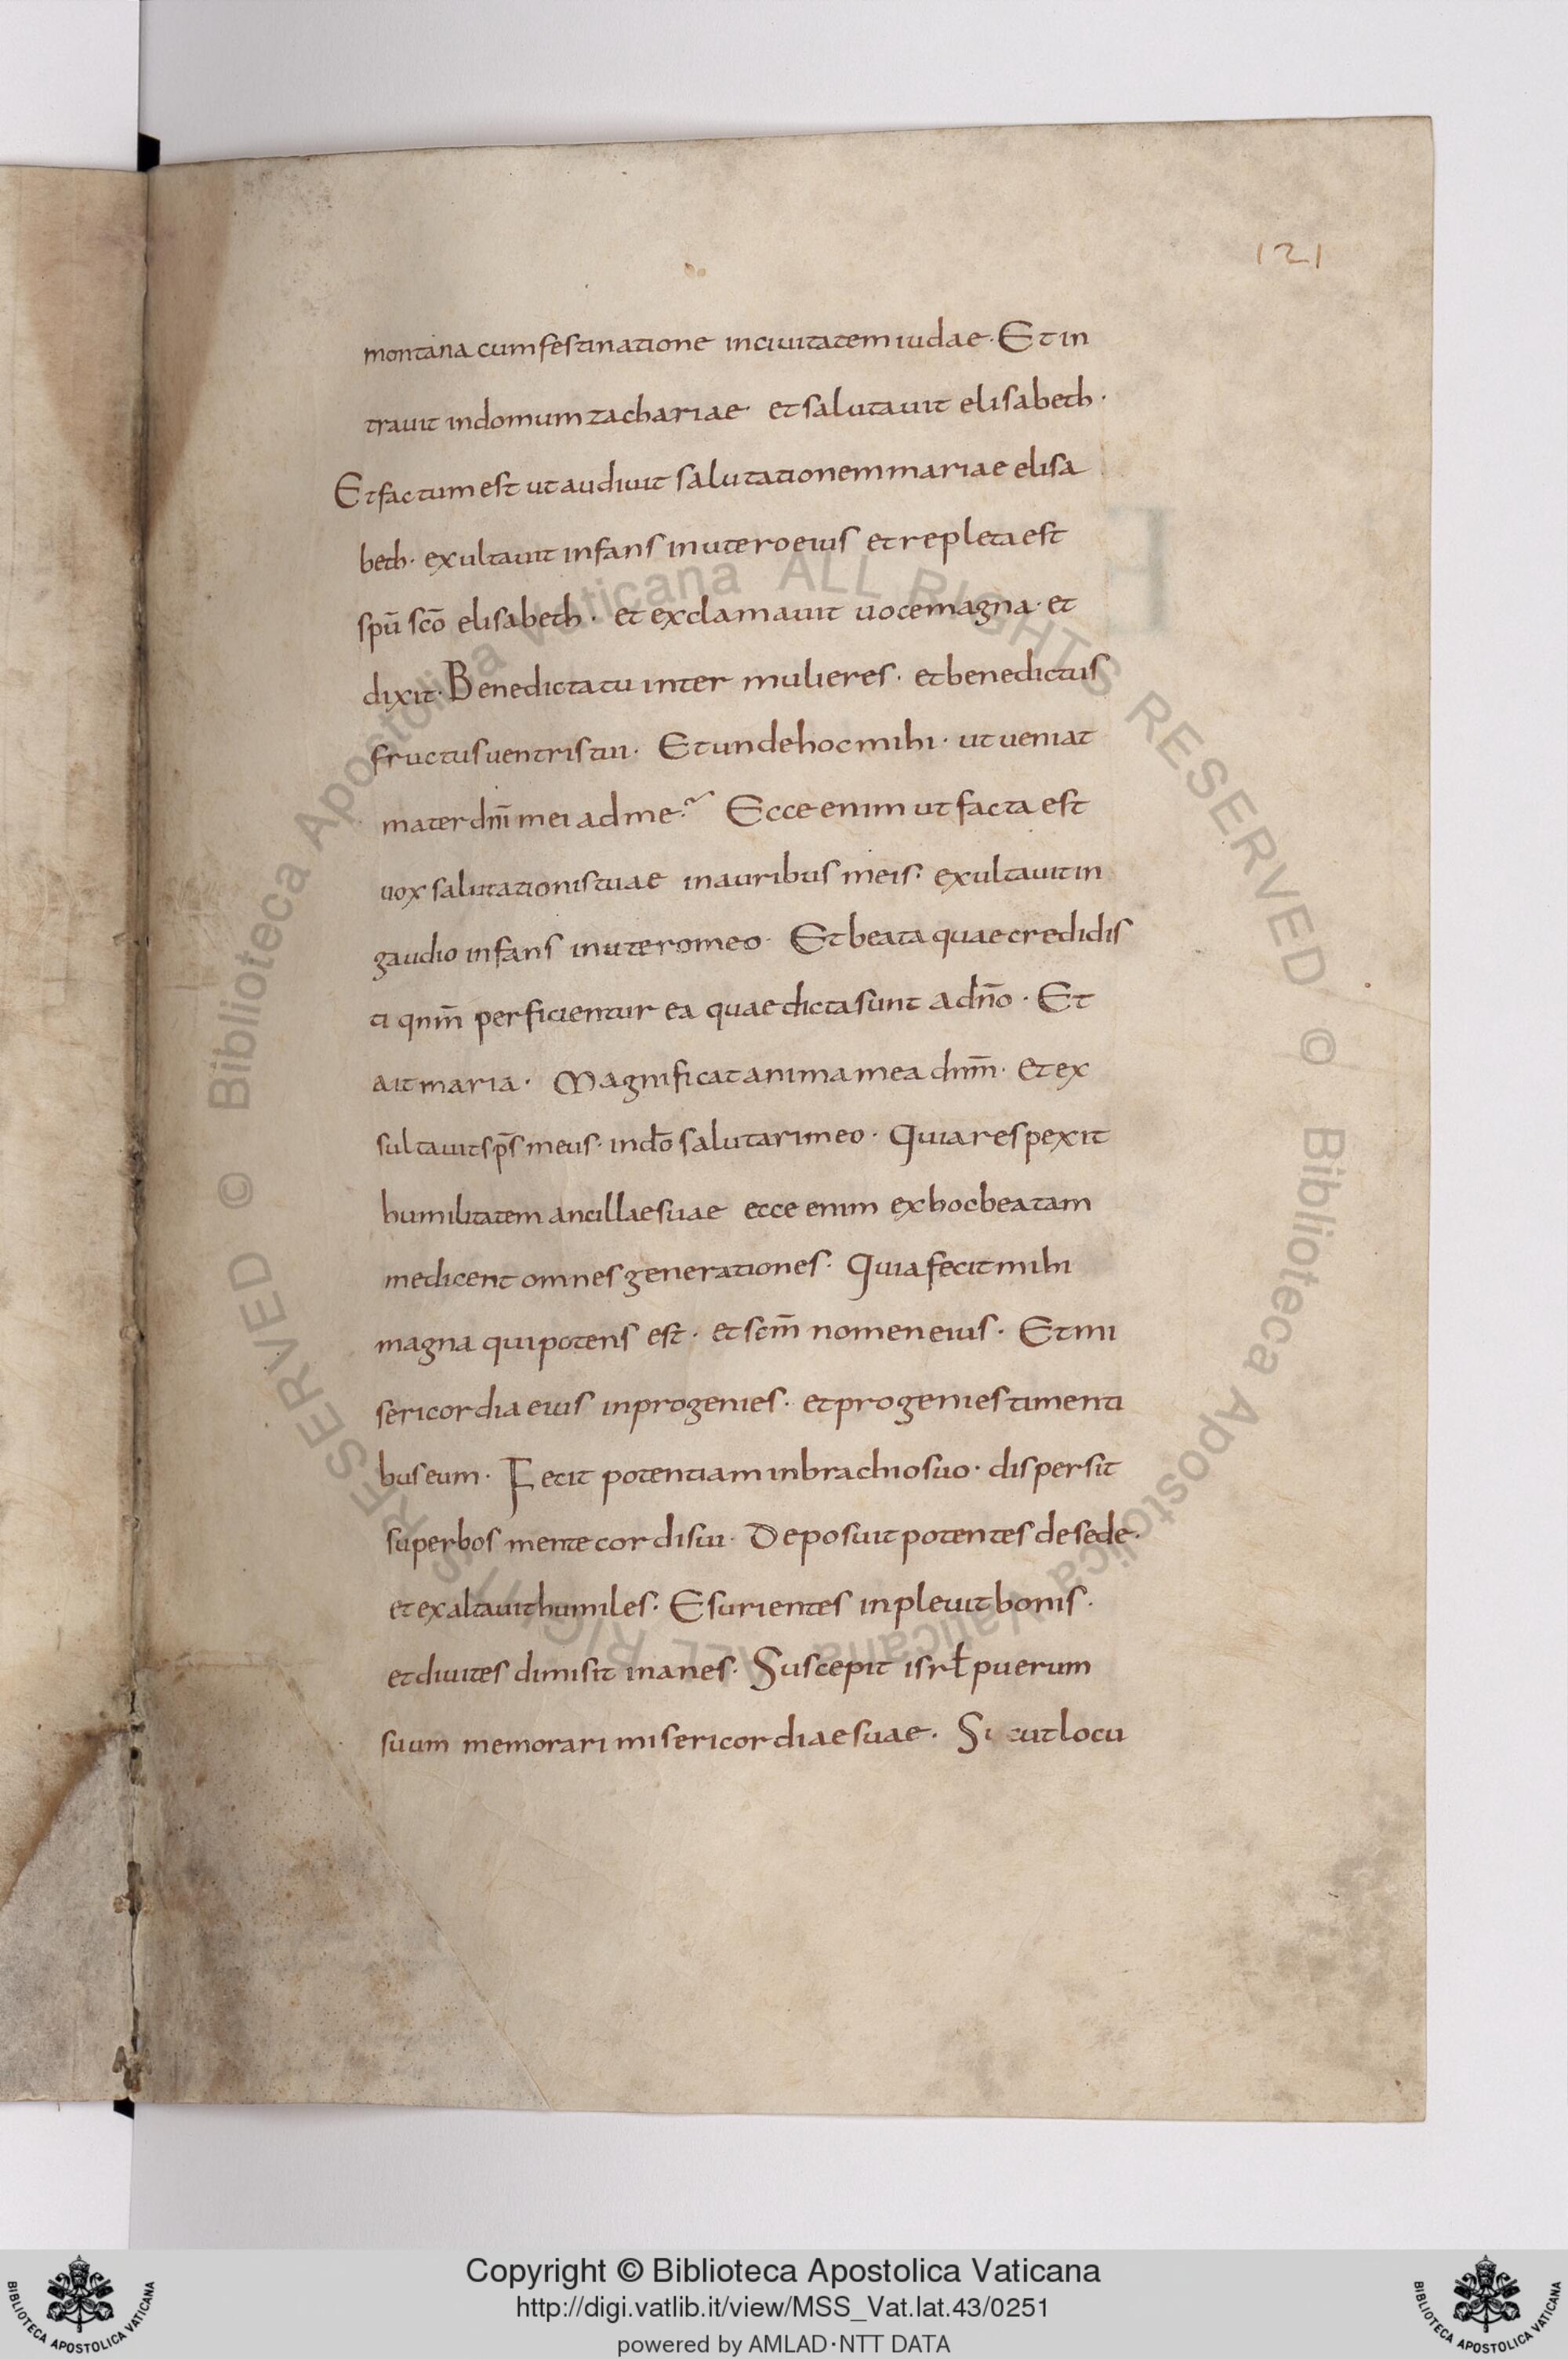 121
montana cum festinatione in ciuitatem iudae· Et in
trauit in domum zachariae· et salutauit elisabeth·
Et factum est ut audiuit salutationem mariae elisa
beth· exultauit infans in utero eius et repleta est
spū scō elisabeth· et exclamauit uoce magna· et
dixit· Benedicta tu inter mulieres· et benedictus
fructus uentris tui· Et unde hoc mihi· ut ueniat
mater dnī mei ad me? Ecce enim ut facta est
uox salutationis tuae in auribus meis? exultauit in
gaudio infans in utero meo· Et beata quae credidis
ti qnm̄ perficientur ea quae dicta sunt a dn̄o· Et
ait maria· Magnificat anima mea dnm̄· et ex
sultauit sps̄ meus· in dō salutari meo· Quia respexit
humilitatem ancillae suae ecce enim ex hoc beatam
me dicent omnes generationes· Quia fecit mihi
magna qui potens est· et scm̄ nomen eius· Et mi
sericordia eius in progenies· et progenies timenti
bus eum· Fecit potentiam in brachio suo· dispersit
superbos mente cordis sui· Deposuit potentes de sede·
et exaltauit humiles· Esurientes inpleuit bonis·
et diuites dimisit inanes· Suscepit isrł puerum
suum memorari misericordiae suae· Si cut locu
© Biblioteca Apostolica Vaticana ALL RIGHTS RESERVED © Biblioteca Apostolica Vaticana ALL RIGHTS RESERVED
Copyright © Biblioteca Apostolica Vaticana
http://digi.vatlib.it/view/MSS_Vat.lat.43/0251
powered by AMLAD·NTT DATA
BIBLIOTECA APOSTOLICA VATICANA
BIBLIOTECA APOSTOLICA VATICANA